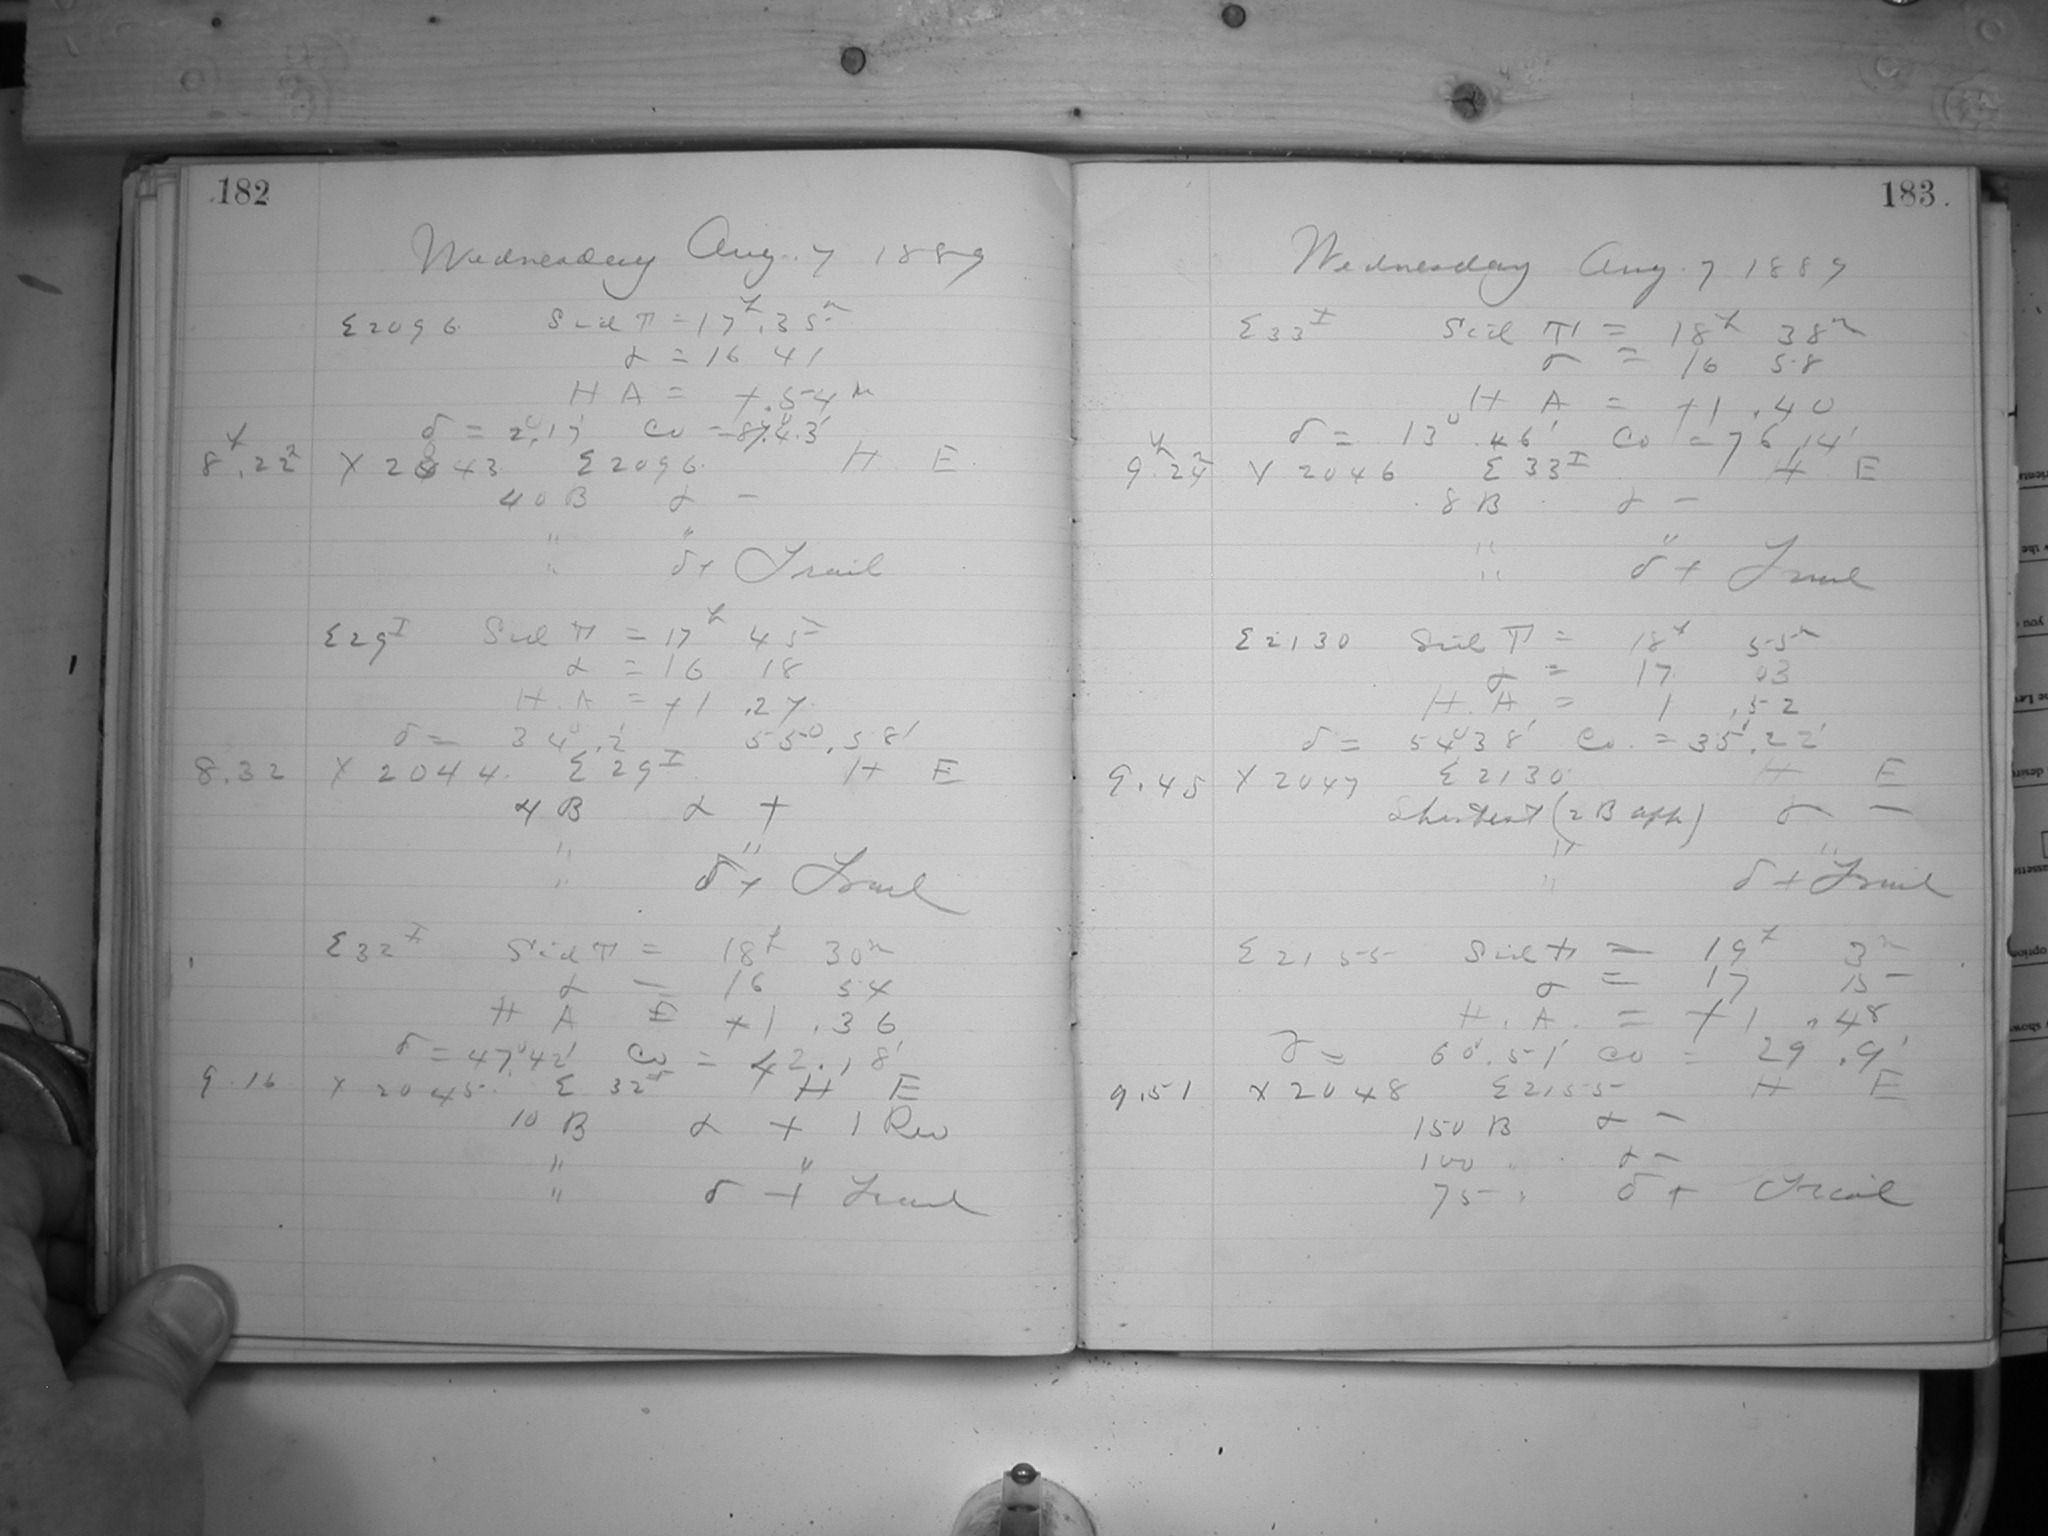 182
Wednesday Aug. 7 1889
Σ2096 Sid T = 17h.35m
α = 16 41
H A = +.54m
δ = 2°.17' Co = 87°.43'
8h.22m X 2043 Σ2096 H E.
40 B α -
" "
" δ+ Trail
Σ29I Sid T = 17h 45m
α = 16 18
H. A = +1 .27
δ = 34°.2' 55°.58'
8.32 X 2044. Σ29I H E
4 B α +
" "
" δ+ Trail
Σ32I Sid T = 18h 30m
α = 16 54
H A = +1 .36
δ = 47°42' Co = 42.18'
9.16 X 2045 Σ 32I H E
10 B α + 1 Rev
" "
" δ + Trail
183.
Wednesday Aug. 7 1889
Σ33I Sid T = 18h 38m
α = 16 58
H A = +1 .40
δ = 13°.46' Co = 76.14'
9h.24m X 2046 Σ 33I H E
8 B α -
" "
" δ + Trail
Σ2130 Sid T = 18h 55m
α = 17 03
H. A = 1 .52
δ = 54°38' Co. = 35°.22'
9.45 X 2047 Σ2130 H E
Shortest (2 B app) α -
" "
" δ + Trail
Σ2155 Sid T = 19h 3m
α = 17 15
H. A. = +1 .48
δ = 60°.51' Co = 29 .9'
9.51 X 2048 Σ2155 H E
150 B α -
100 " α -
75 " δ + Trail